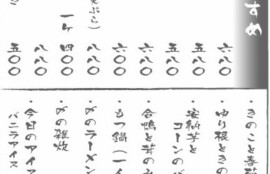 すめ
六〇〇
五八〇
五八〇
六八〇
六〇〇
天ぷら)
八八〇
一ヶ 四〇〇
八八〇
五〇〇
・きのこと春
・ゆり根ときの
・安納芋と
コーンのバ
・合鴨と芋の
・もつ鍋(一人
・〆のラーメン
・〆の雑炊
・今日のアイス
バニラアイス